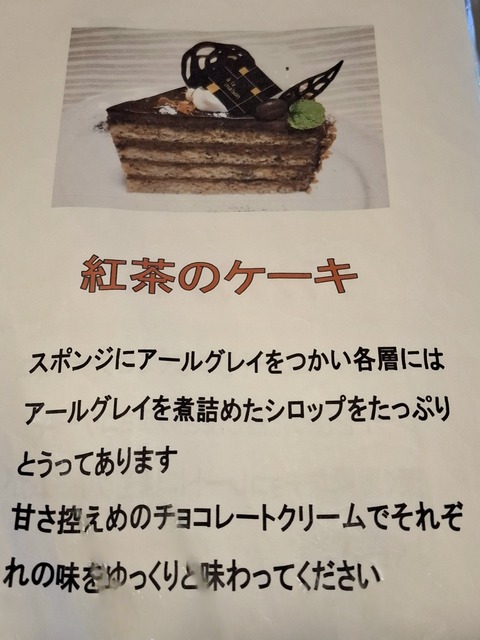 紅茶のケーキ
スポンジにアールグレイをつかい各層には
アールグレイを煮詰めたシロップをたっぷり
とうってあります
甘さ控えめのチョコレートクリームでそれぞ
れの味をゆっくりと味わってください